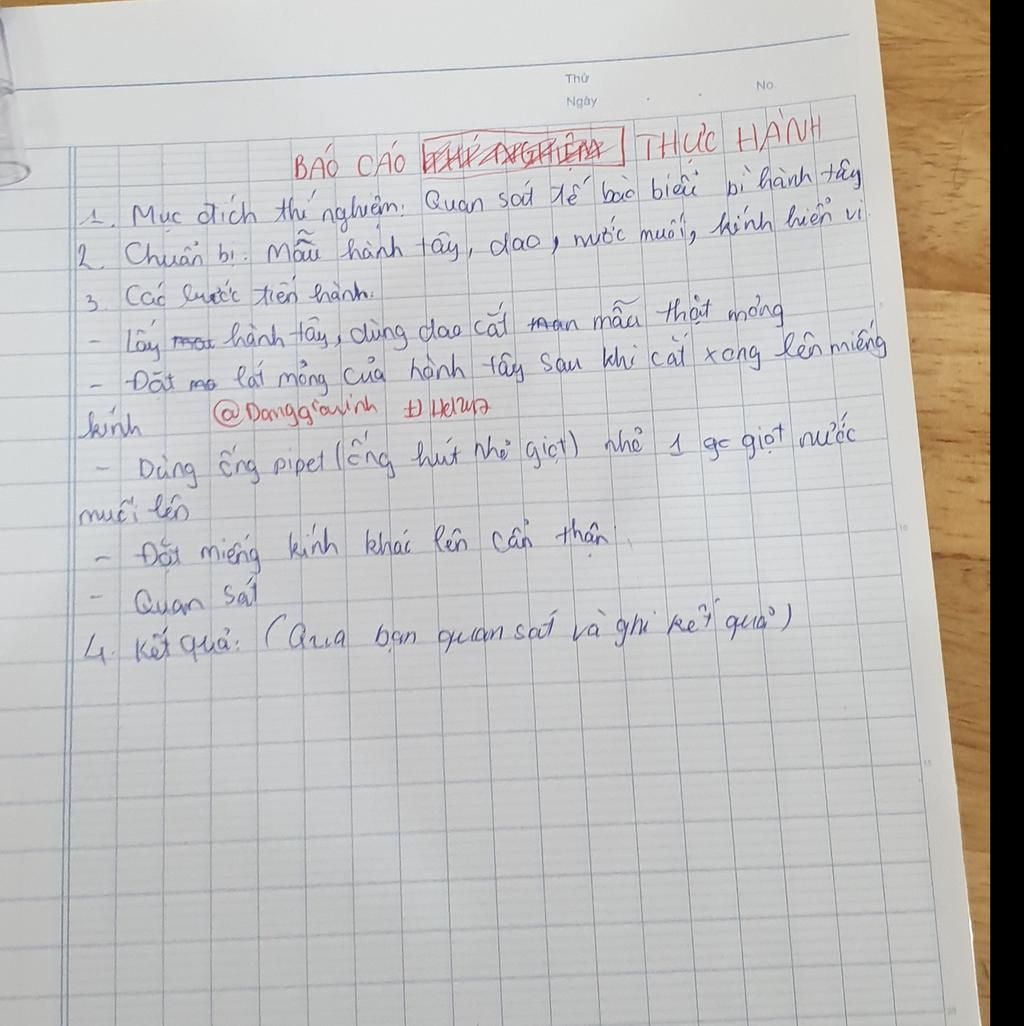 Thứ
Ngày
No
BÁO CÁO THỰC HÀNH
1. Mục đích thí nghiệm: Quan sát tế bào biểu bì hành tây
2. Chuẩn bị: Mẫu hành tây, dao, nước muối, kính hiển vi
3. Các bước tiến hành:
- Lấy hành tây, dùng dao cắt mẫu thật mỏng
- Đặt lát mỏng của hành tây sau khi cắt xong lên miếng
kính @Danggiavinh
- Dùng ống pipet (ống hút nhỏ giọt) nhỏ 1 giọt nước
muối lên
- Đặt miếng kính khác lên cẩn thận
- Quan sát
4. Kết quả: (Qua bạn quan sát và ghi kết quả)